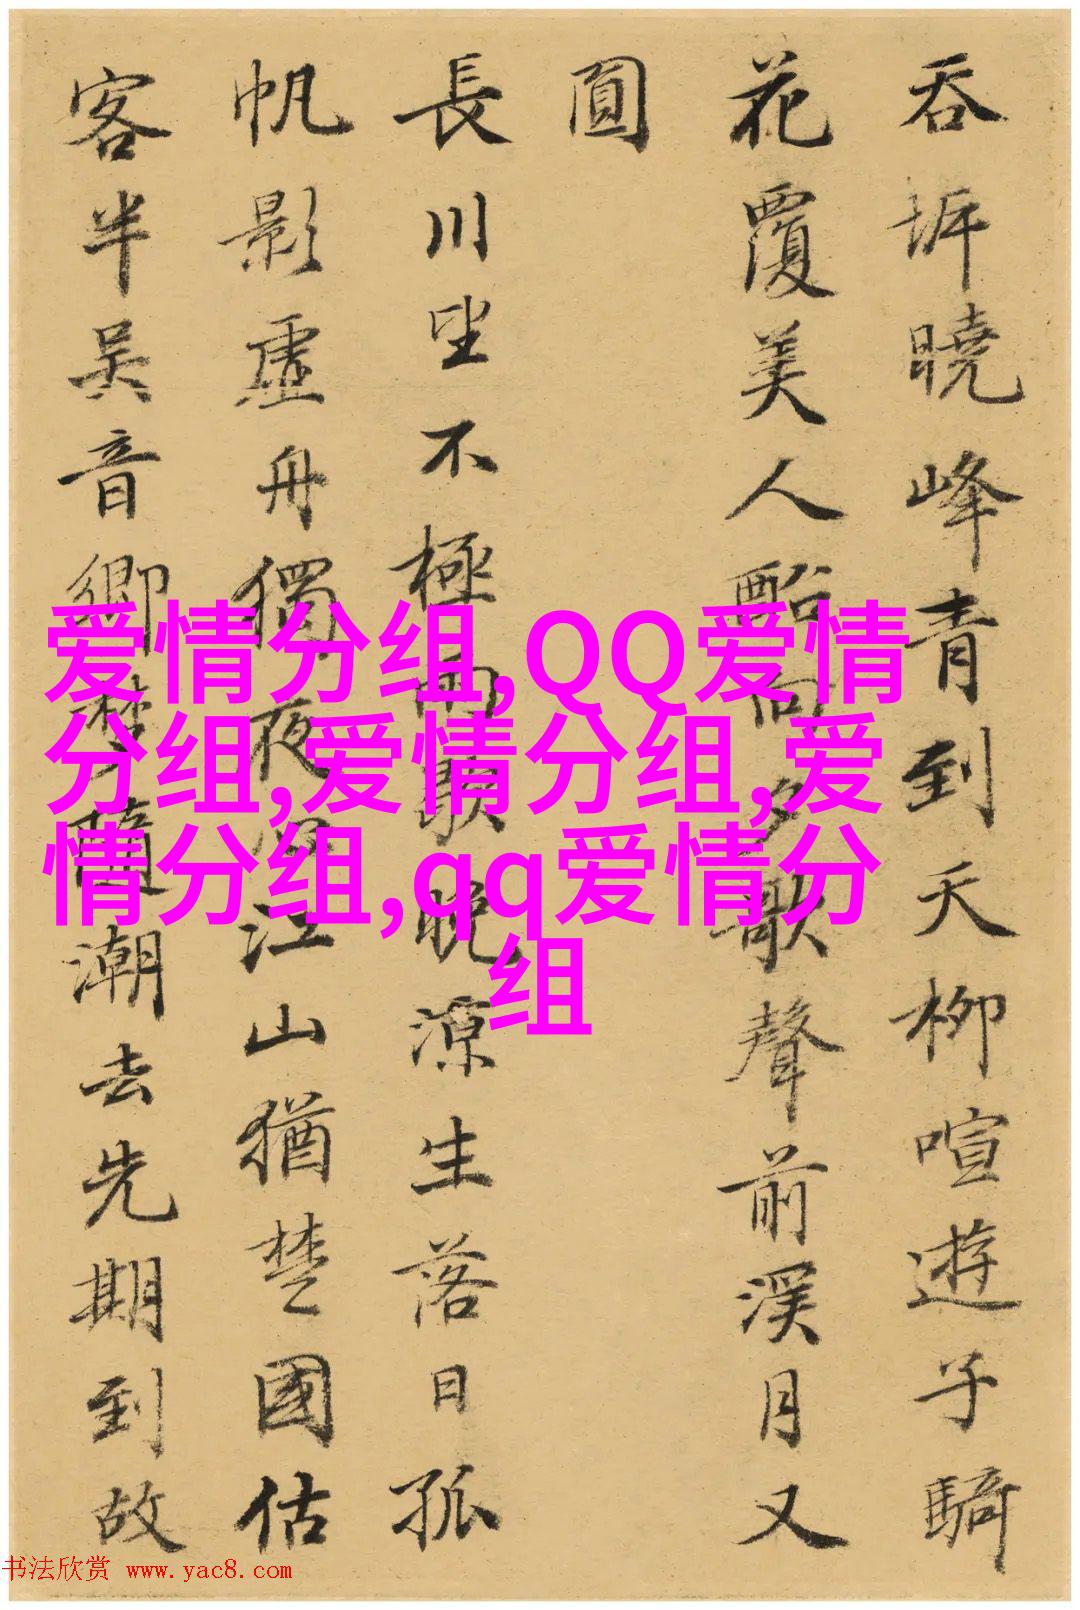 吞坼曉峰青到天柳喧遊子騎
花覆美人舩向夕歌聲前溪月又
圓
長川坐不極雨歇晚涼生落日孤
帆影虛舟獨夜心江山猶楚國估
客半吳音鄉夢隨潮去先期到故
爱情分组,QQ爱情
分组,爱情分组,爱
情分组,qq爱情分
组
书法欣赏 www.yac8.com